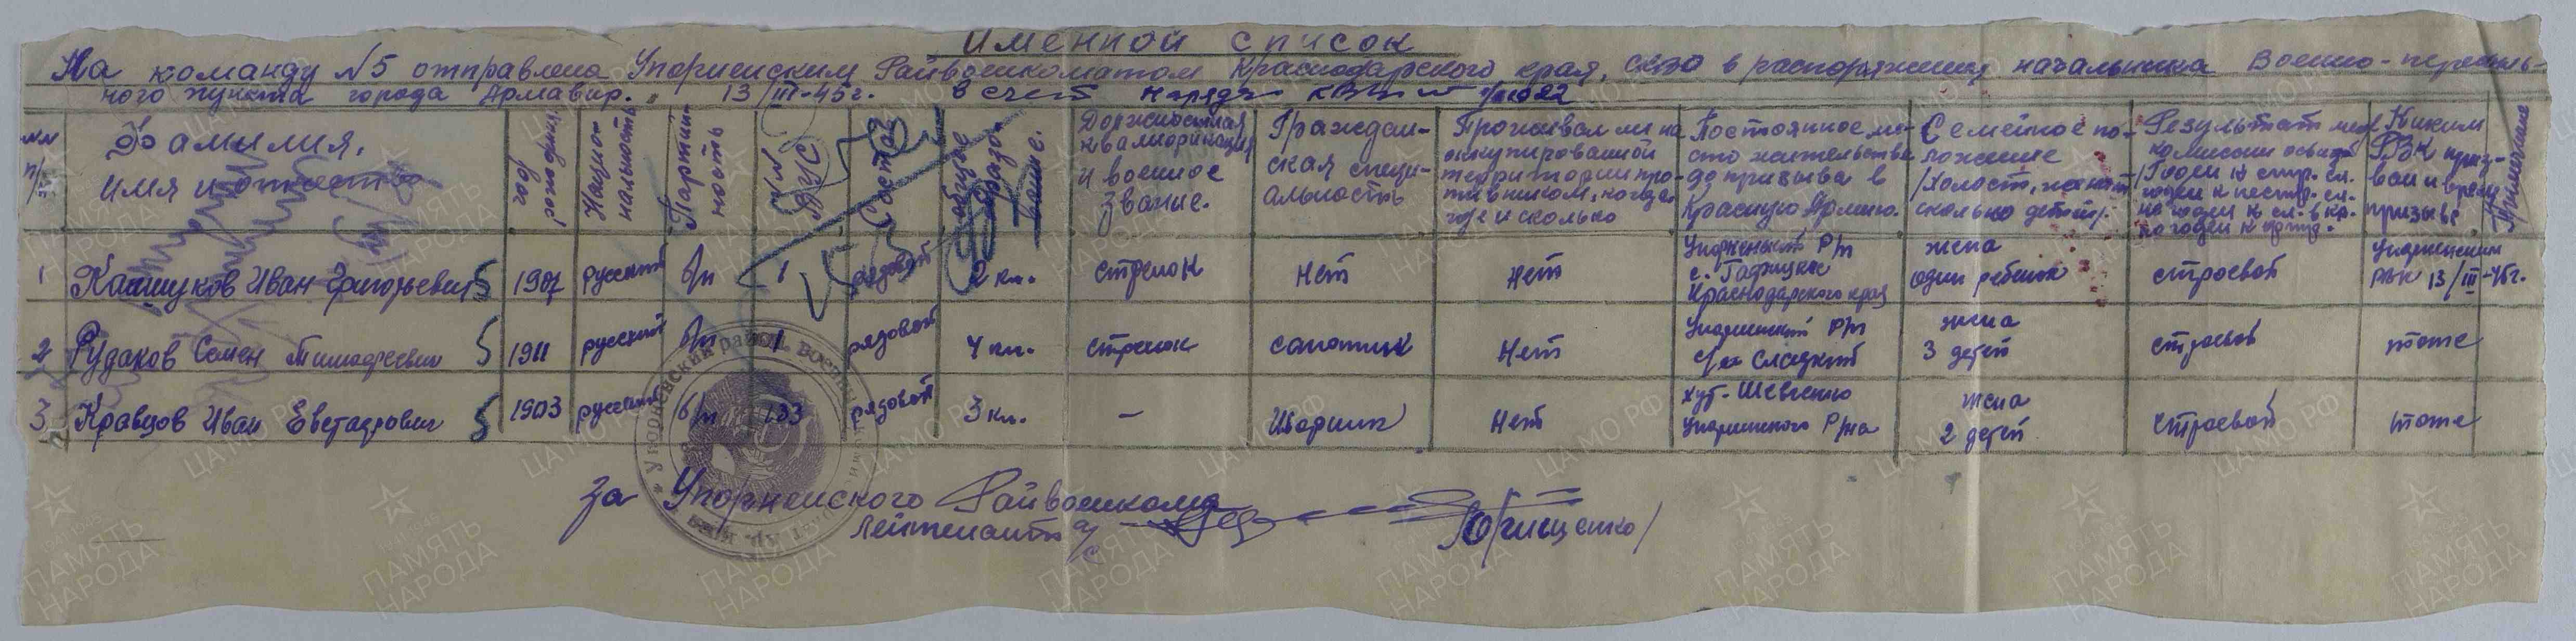 Именной список
На команду N5 отправлена Упорненским Райвоенкоматом Краснодарского края, СКВО в распоряжения начальника Военно-пересыль-
ного пункта города Армавир. 13/III-45г. в счет наряда
NN п/п
Фамилия, имя и отчество
год рождения
Национальность
Партийность
NN ВУС
Состав
Общее образование.
Должностная квалификация и военное звание.
Граждан-
ская специ-
альность
Проживал ли на
оккупированной
территории про-
тивником, когда
где и сколько
Постоянное ме-
сто жительства
до призыва в
Красную Армию.
Семейное по-
ложение
/холост, женат
сколько детей/.
Результат мед
комиссии освид
/Годен к стр. сл.
годен к нестр. сл.
Каким
РВК приз-
ван и время
призыва
Примечание
1 Кашуков Иван Григорьевич 1907 русский б/п 1 рядовой 2 кл. стрелок Нет Нет
Упорненский р/н
Краснодарского края
жена
один ребенок
строевой
Упорненским
РВК 13/III-45г.
2 Рудаков Семен Тимофеевич 1911 русский б/п 1 рядовой 4 кл. стрелок сапожник Нет
Упорненский р/н
Сладкий
жена
3 детей
строевой
тоже
3 Кравцов Иван Евстафович 1903 русский б/п 133 рядовой 3 кл. — Нет
хут. Шевченко
Упорненского р/на
жена
2 детей
строевой
тоже
За Упорненского Райвоенкома
лейтенант а/с /Юрищенко/
ЦАМО РФ
1941 1945
ПАМЯТЬ
НАРОДА